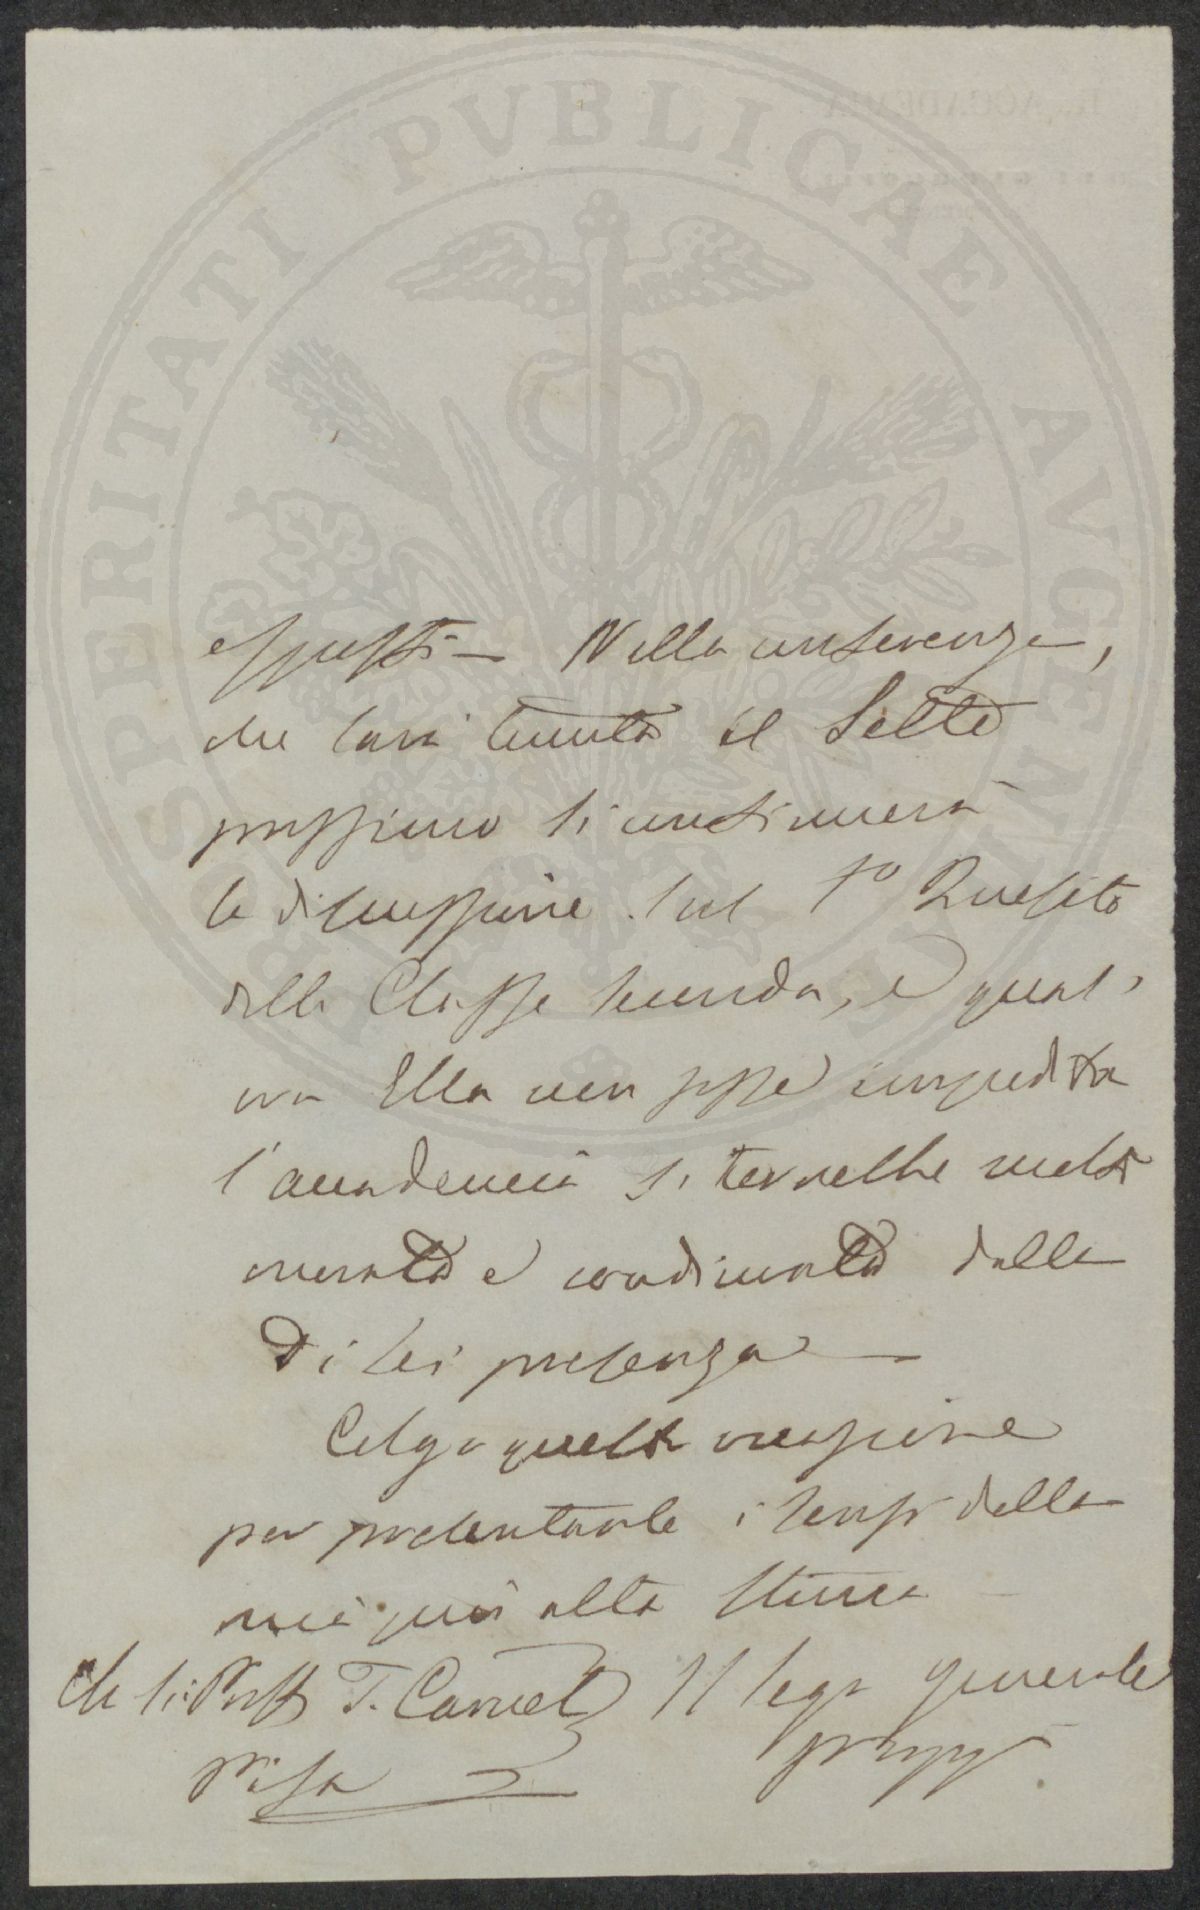 PROSPERITATI PUBLICAE AUGENDAE
R. ACCADEMIA
esposti — Nella conferenza,
che sarà tenuta il Sette
prossimo si continuerà
la discussione sul 1º Quesito
della Classe seconda, e qual,
ora Ella non fosse impedita
l'accademia si terrebbe molto
onorata e coadiuvata dalla
di lei presenza —
Colgo questa occasione
per presentarle i sensi della
mia più alta stima
Ch. Sig. Prof. T. Caruel Il Segr. generale
Pisa